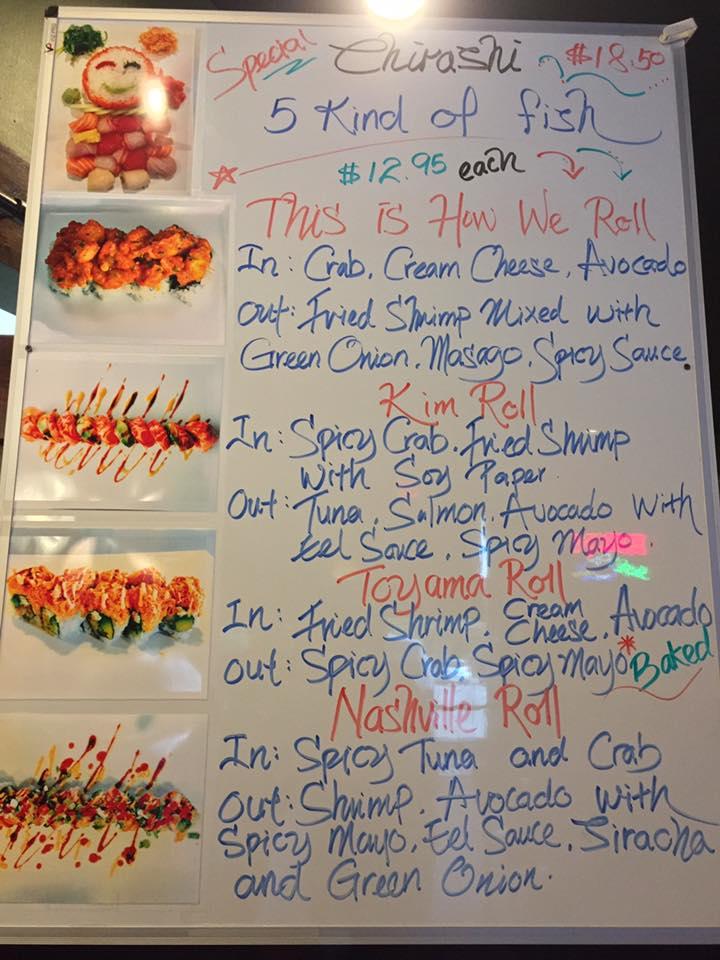 Special Chirashi $18.50
5 Kind of fish
$12.95 each
This is How We Roll
In: Crab, Cream Cheese, Avocado
Out: Fried Shrimp Mixed with
Green Onion, Masago, Spicy Sauce
Kim Roll
In: Spicy Crab, Fried Shrimp
with Soy Paper
Out: Tuna, Salmon, Avocado with
Eel Sauce, Spicy Mayo.
Toyama Roll
In: Fried Shrimp, Cream Cheese, Avocado
out: Spicy Crab, Spicy Mayo *Baked
Nashville Roll
In: Spicy Tuna and Crab
Out: Shrimp, Avocado with
Spicy Mayo, Eel Sauce, Siracha
and Green Onion.